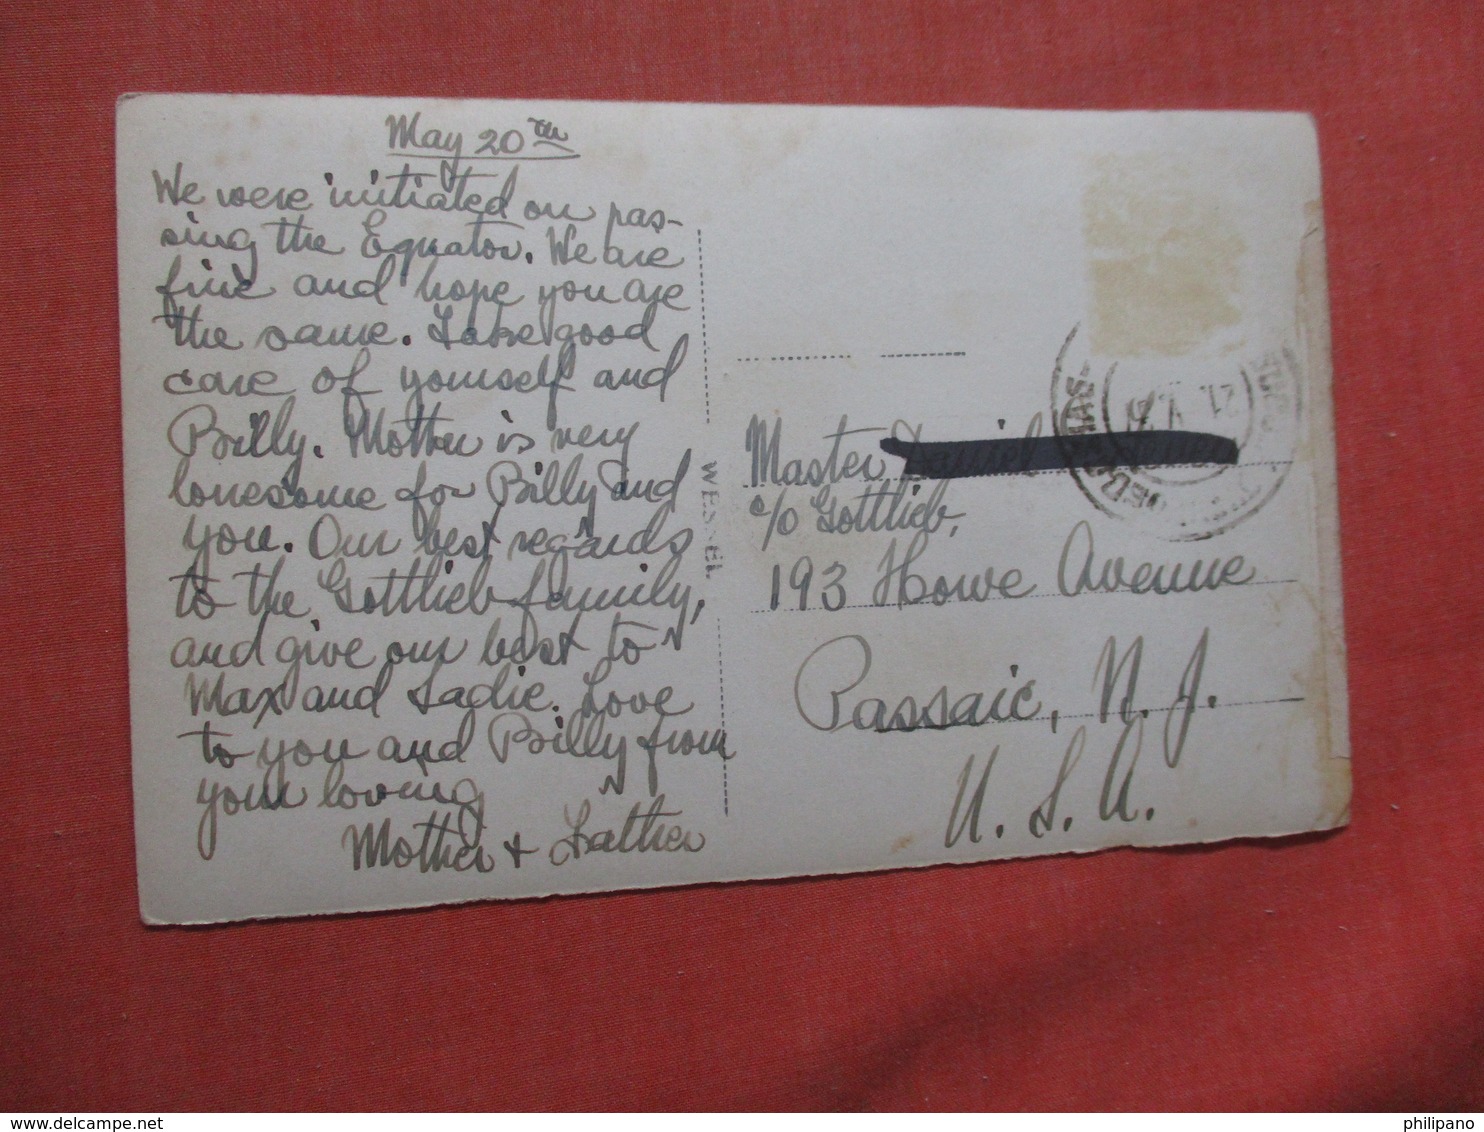 May 20th
We were initiated on pas-
sing the Equator. We are
fine and hope you are
the same. Take good
care of yourself and
Billy. Mother is very
lonesome for Billy and
you. Our best regards
to the Gottlieb family,
and give our best to
Max and Sadie. Love
to you and Billy from
your loving
Mother + Father
WESSEL
21. V.
Master Daniel
c/o Gottlieb,
193 Howe Avenue
Passaic, N. J.
U. S. A.
delcampe.net
philipano